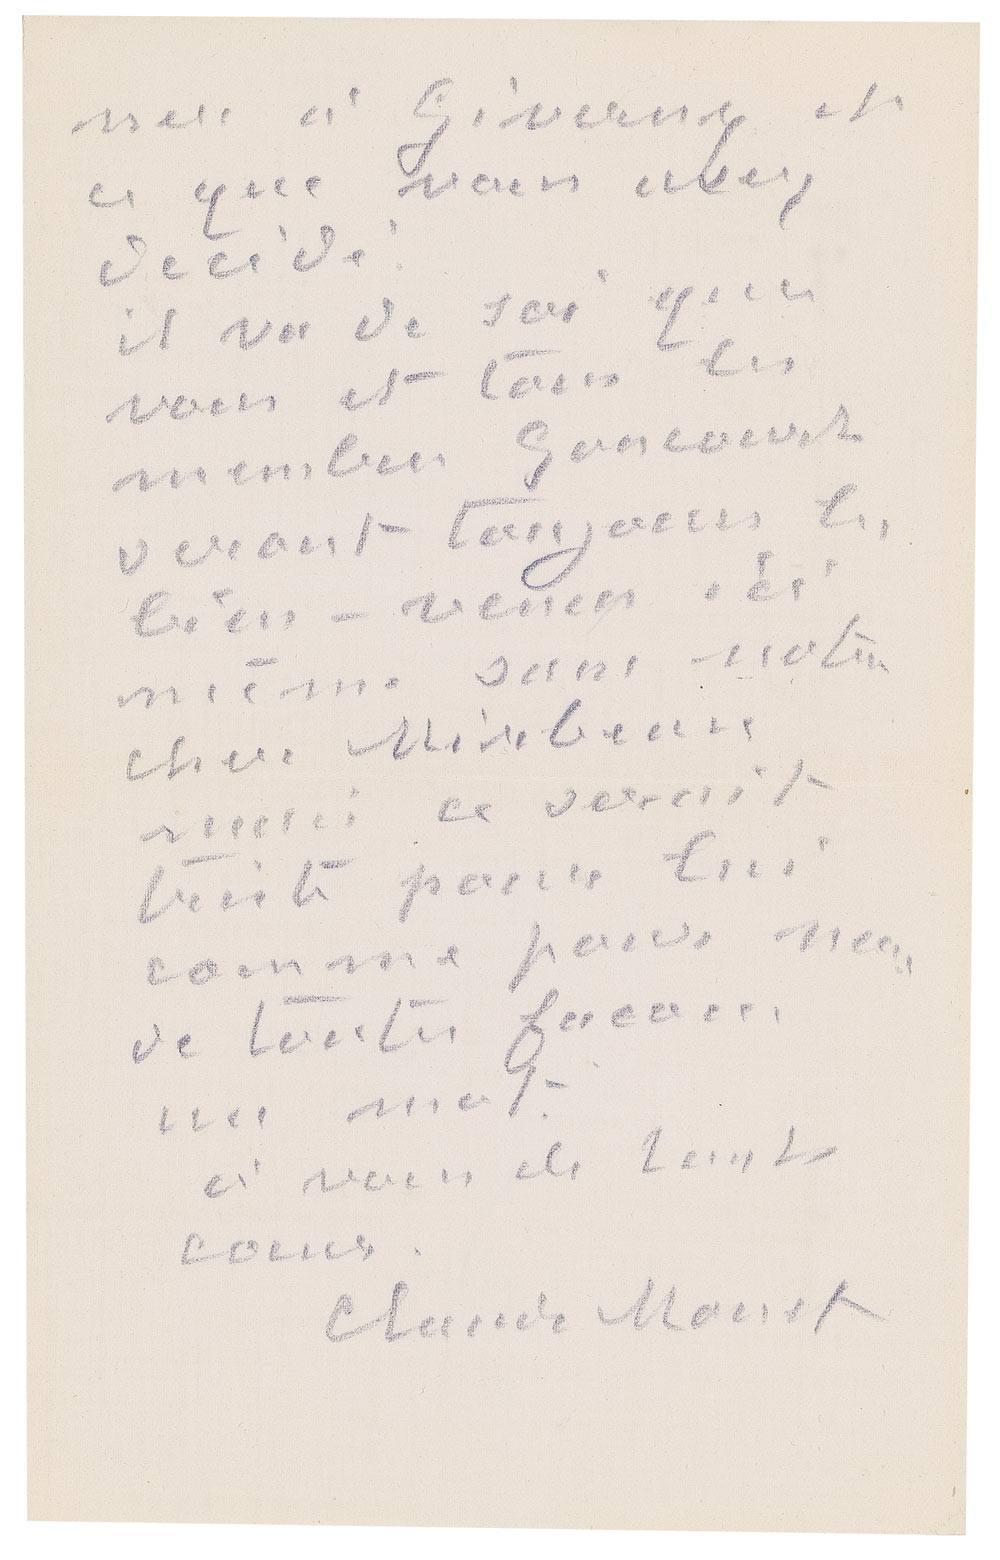 ner à Giverny et
ce que vous avez
décidé.
il va de soi que
vous et tous les
membres Goncourt
seront toujours les
bien-venus ici
même sans notre
cher Mirbeau
mais ce serait
triste pour lui
comme pour nous
de toutes façons
un mot.
à vous de tout
cœur.
Claude Monet